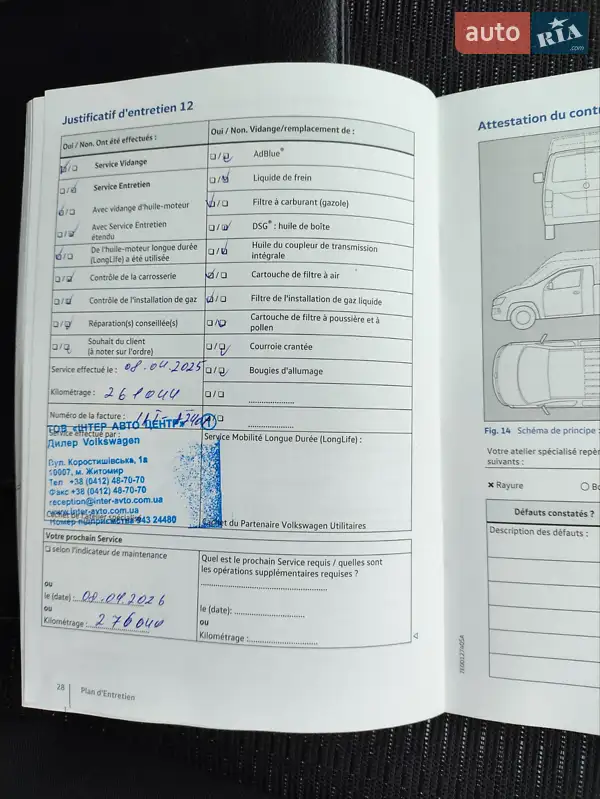 auto RIA .com
Justificatif d'entretien 12
Oui / Non. Ont été effectués :
Oui / Non. Vidange/remplacement de :
Service Vidange
AdBlue®
Service Entretien
Liquide de frein
Avec vidange d'huile-moteur
Filtre à carburant (gazole)
Avec Service Entretien étendu
DSG® : huile de boîte
De l'huile-moteur longue durée (LongLife) a été utilisée
Huile du coupleur de transmission intégrale
Contrôle de la carrosserie
Cartouche de filtre à air
Contrôle de l'installation de gaz
Filtre de l'installation de gaz liquide
Réparation(s) conseillée(s)
Cartouche de filtre à poussière et à pollen
Souhait du client (à noter sur l'ordre)
Courroie crantée
Service effectué le : 08.04.2025
Bougies d'allumage
Kilométrage : 261044
Numéro de la facture :
Service effectué par :
ТОВ «ІНТЕР АВТО ЦЕНТР»
Дилер Volkswagen
Вул. Коростишівська, 1а
10007, м. Житомир
Тел +38 (0412) 48-70-70
Факс +38 (0412) 48-70-70
reception@inter-avto.com.ua
www.inter-avto.com.ua
Номер підприємства 943 24480
Cachet de l'atelier spécialisé
Service Mobilité Longue Durée (LongLife) :
Cachet du Partenaire Volkswagen Utilitaires
Votre prochain Service
selon l'indicateur de maintenance
ou
le (date) : 08.04.2026
ou
Kilométrage : 276044
Quel est le prochain Service requis / quelles sont
les opérations supplémentaires requises ?
le (date):
ou
Kilométrage :
28
Plan d'Entretien
7E0012740SA
Attestation du cont
Fig. 14 Schéma de principe :
Votre atelier spécialisé repèr
suivants :
× Rayure
Bo
Défauts constatés ?
Description des défauts :